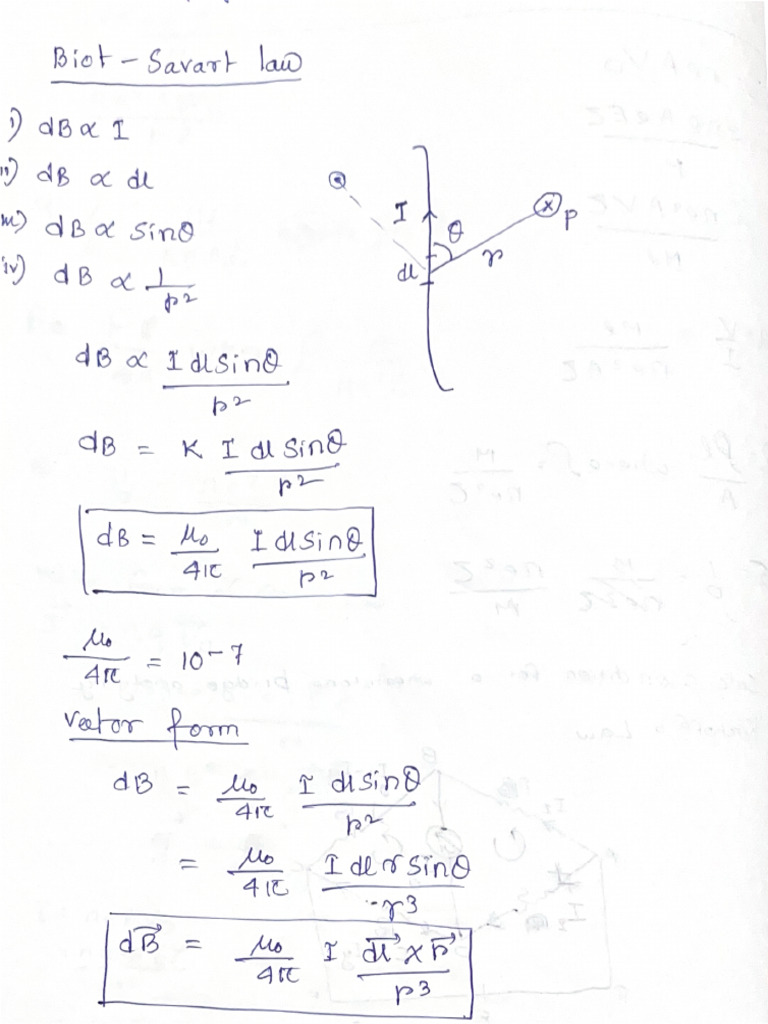 Biot - Savart law
i) dB ∝ I
ii) dB ∝ dl
iii) dB ∝ sinθ
iv) dB ∝ 1/r²
I θ P
dl r
dB ∝ I dl sinθ / r²
dB = K I dl sinθ / r²
dB = μ₀/4π I dl sinθ / r²
μ₀/4π = 10-7
Vector form
dB = μ₀/4π I dl sinθ / r²
= μ₀/4π I dl r sinθ / r³
dB⃗ = μ₀/4π I dl⃗ × r⃗ / r³